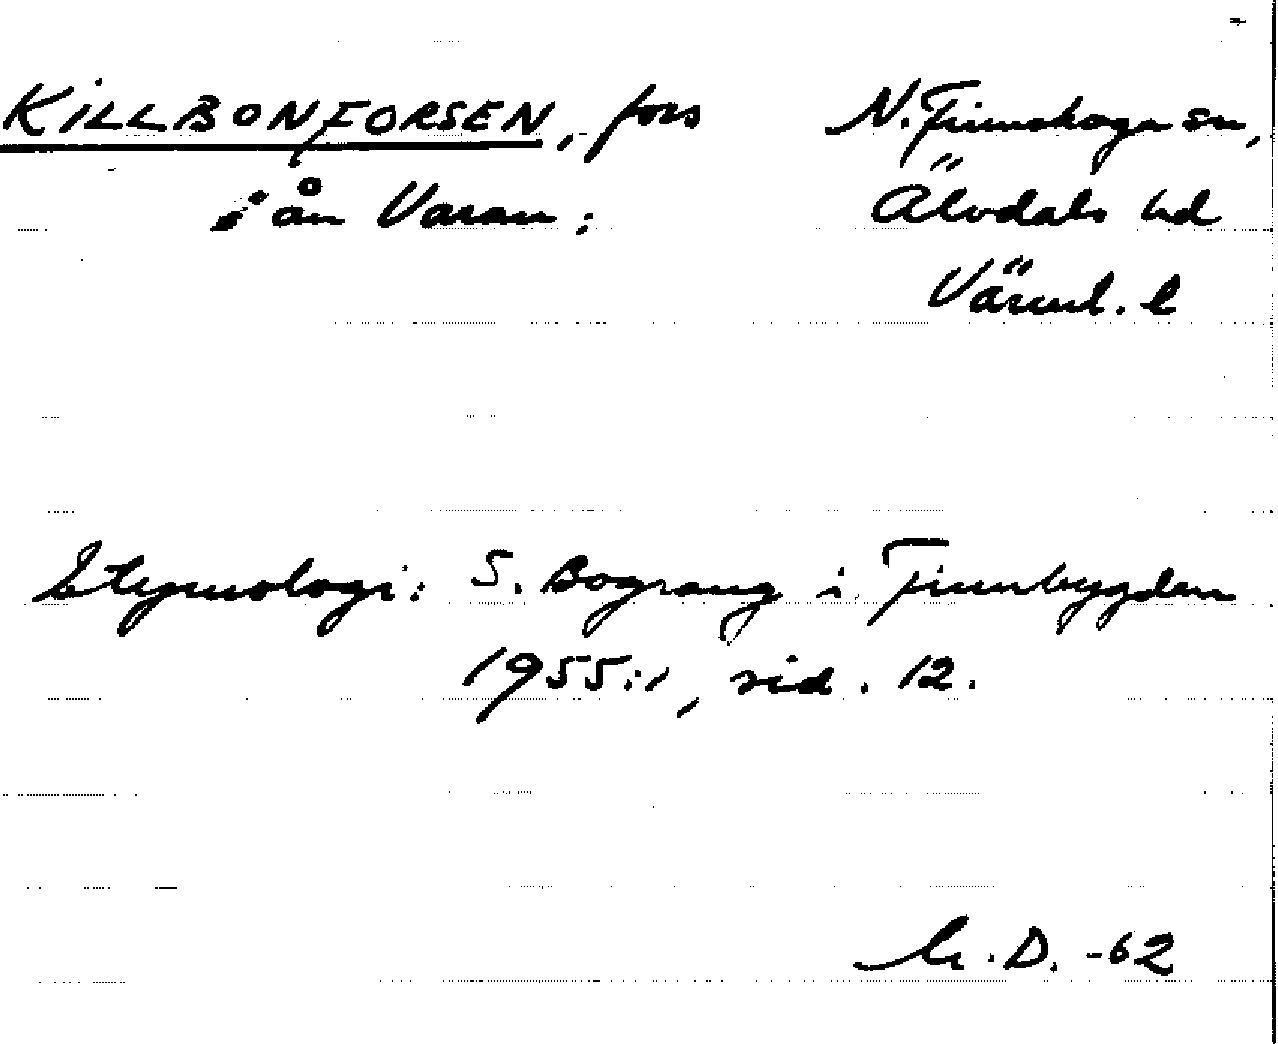 KILLBONFORSEN, fors N. Finnskoga sn,
i ån Varan; Älvdals hd
Värml. l
Etymologi: S. Bograng i Finnbygden
1955:1, sid. 12.
D. -62